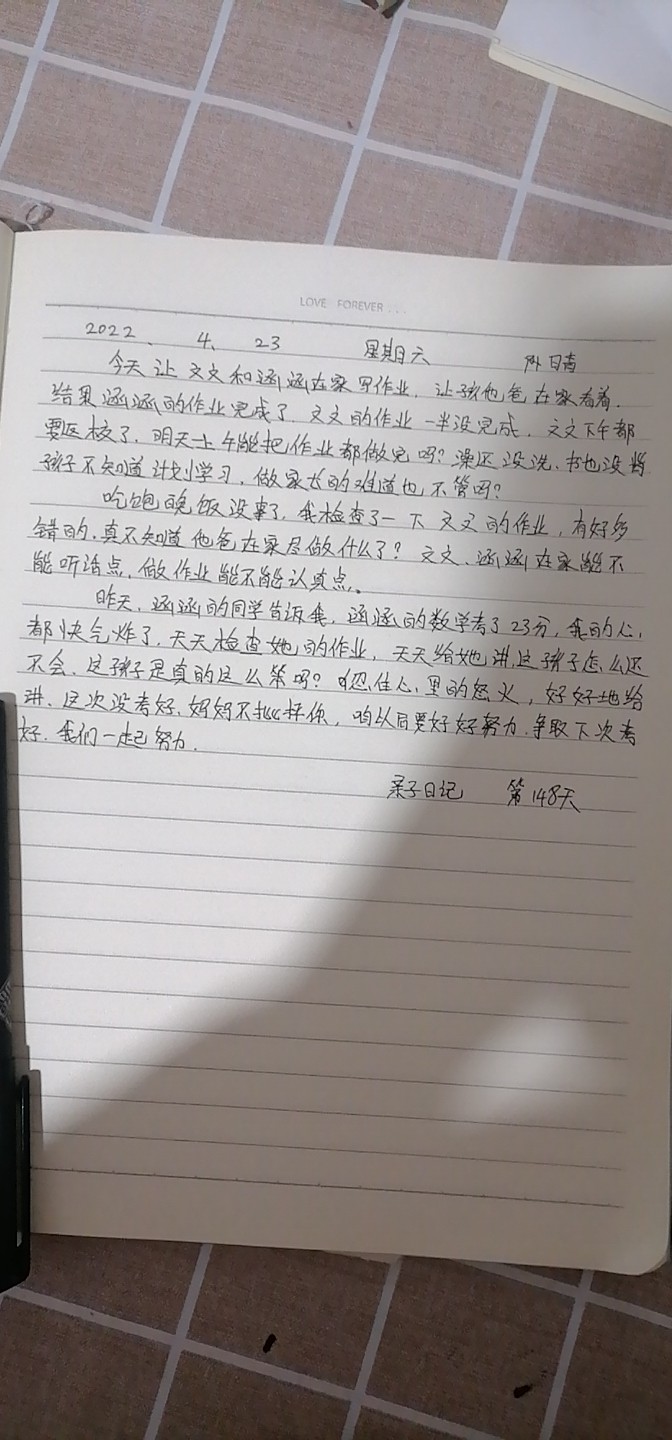 LOVE FOREVER...
2022、 4、 23 星期六 阴 晴
今天让文文和涵涵在家写作业，让孩他爸在家看着.
结果涵涵的作业完成了，文文的作业一半没完成，文文下午都
要返校了，明天上午能把作业都做完吗？澡还没洗、书也没背
孩子不知道计划学习，做家长的难道也不管吗？
吃饱晚饭没事了，我检查了一下文文的作业，有好多
错的，真不知道他爸在家尽做什么了？文文、涵涵在家能不
能听话点，做作业能不能认真点。
昨天，涵涵的同学告诉我，涵涵的数学考了23分，我的心，
都快气炸了，天天检查她的作业，天天给她讲，这孩子怎么还
不会，这孩子是真的这么笨吗？忍住心里的怒火，好好地给
讲，这次没考好，妈妈不批评你，咱以后要好好努力，争取下次考
好，我们一起努力.
亲子日记 第148天